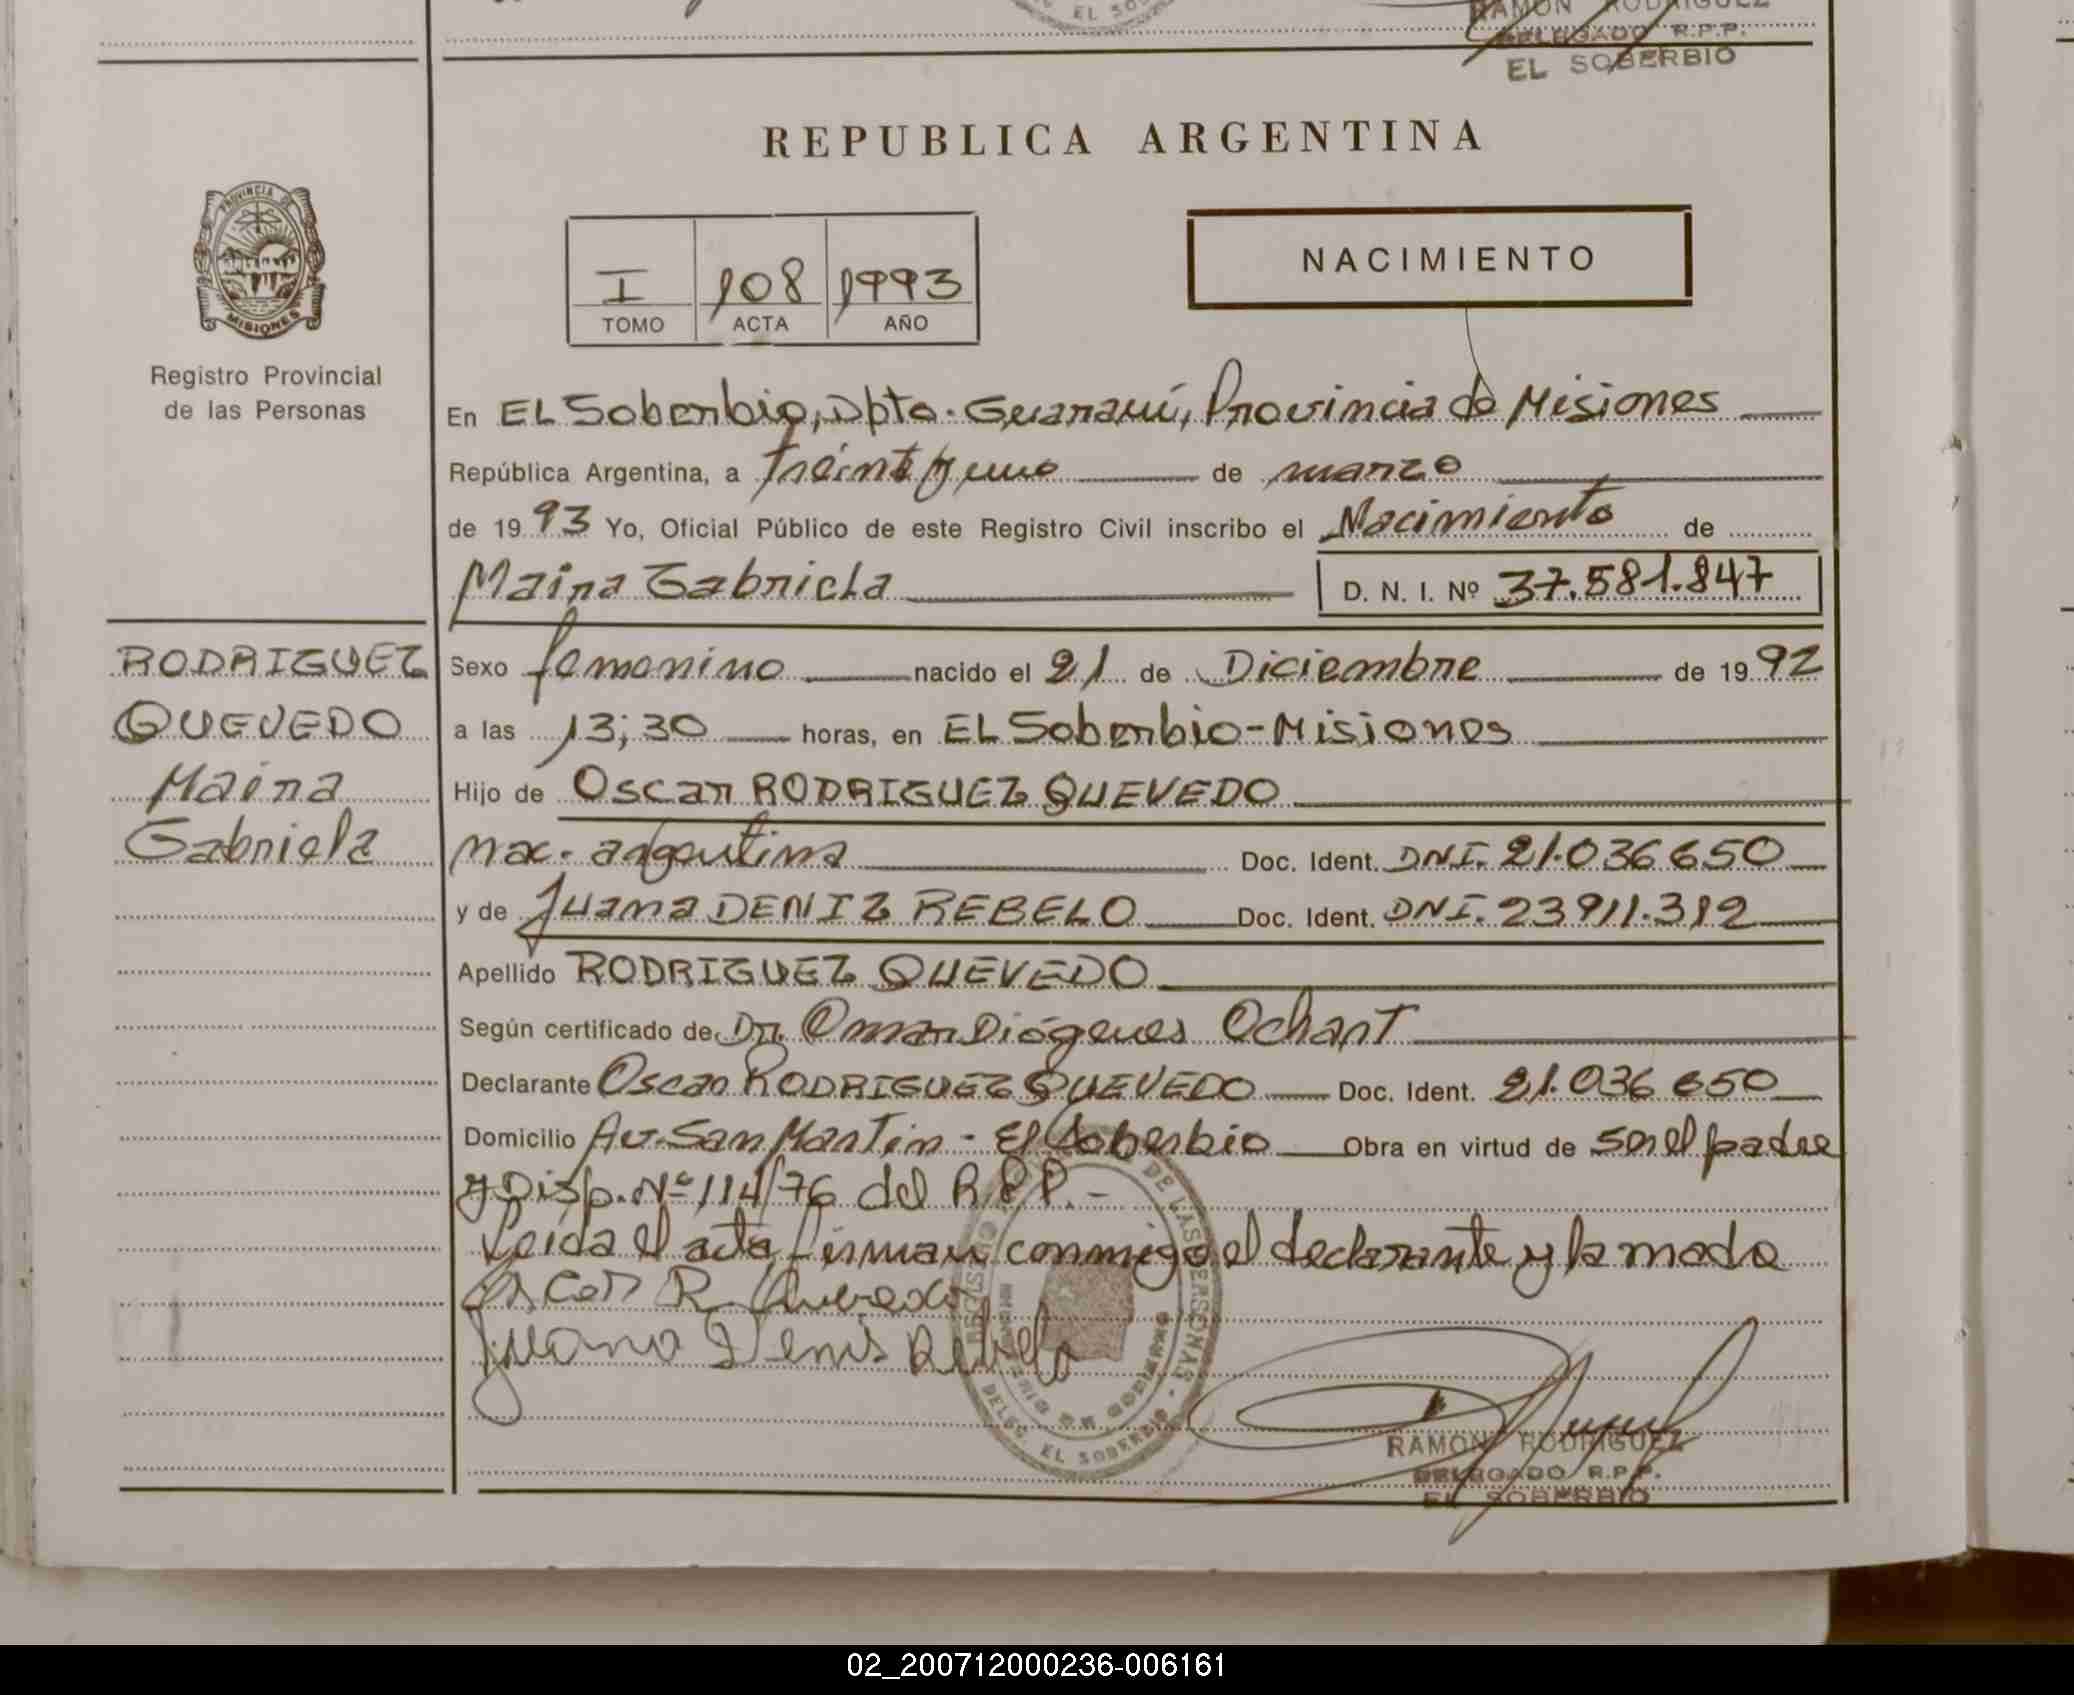 RAMON RODRIGUEZ
DELEGADO R.P.P.
EL SOBERBIO
REPUBLICA ARGENTINA
PROVINCIA DE
MISIONES
Registro Provincial
de las Personas
I 108 1993
TOMO ACTA AÑO
NACIMIENTO
En EL Soberbio, Dpto. Guaraní, Provincia de Misiones
República Argentina, a treinta y uno de marzo
de 1993 Yo, Oficial Público de este Registro Civil inscribo el Nacimiento de
Maira Gabriela D. N. I. Nº 37.581.847
RODRIGUEZ
QUEVEDO
Maira
Gabriela
Sexo femenino nacido el 21 de Diciembre de 1992
a las 13;30 horas, en EL Soberbio-Misiones
Hijo de Oscar RODRIGUEZ QUEVEDO
nac. argentina Doc. Ident. DNI. 21.036.650
y de Juana DENIZ REBELO Doc. Ident. DNI. 23.911.312
Apellido RODRIGUEZ QUEVEDO
Según certificado de Dr. Omar Diógenes Ochart
Declarante Oscar RODRIGUEZ QUEVEDO Doc. Ident. 21.036.650
Domicilio Av. San Martin - El Soberbio Obra en virtud de ser el padre
y Disp. Nº 114/76 del R.P.P. -
Leida el acta firman conmigo el declarante y la madre
Oscar R. Quevedo
Juana Denis Rebelo
DE LAS PERSONAS
DELEG. EL SOBERBIO
RAMON RODRIGUEZ
DELEGADO R.P.P.
EL SOBERBIO
02_200712000236-006161